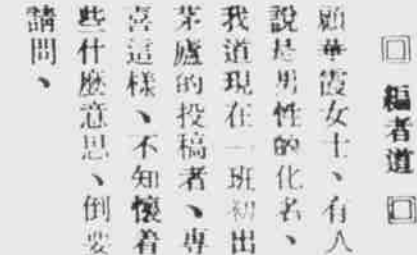 □ 編者道 □
顧華霞女士、有人
說是男性的化名、
我道現在一班初出
茅廬的投稿者、專
喜這樣、不知懷着
些什麼意思、倒要
請問、